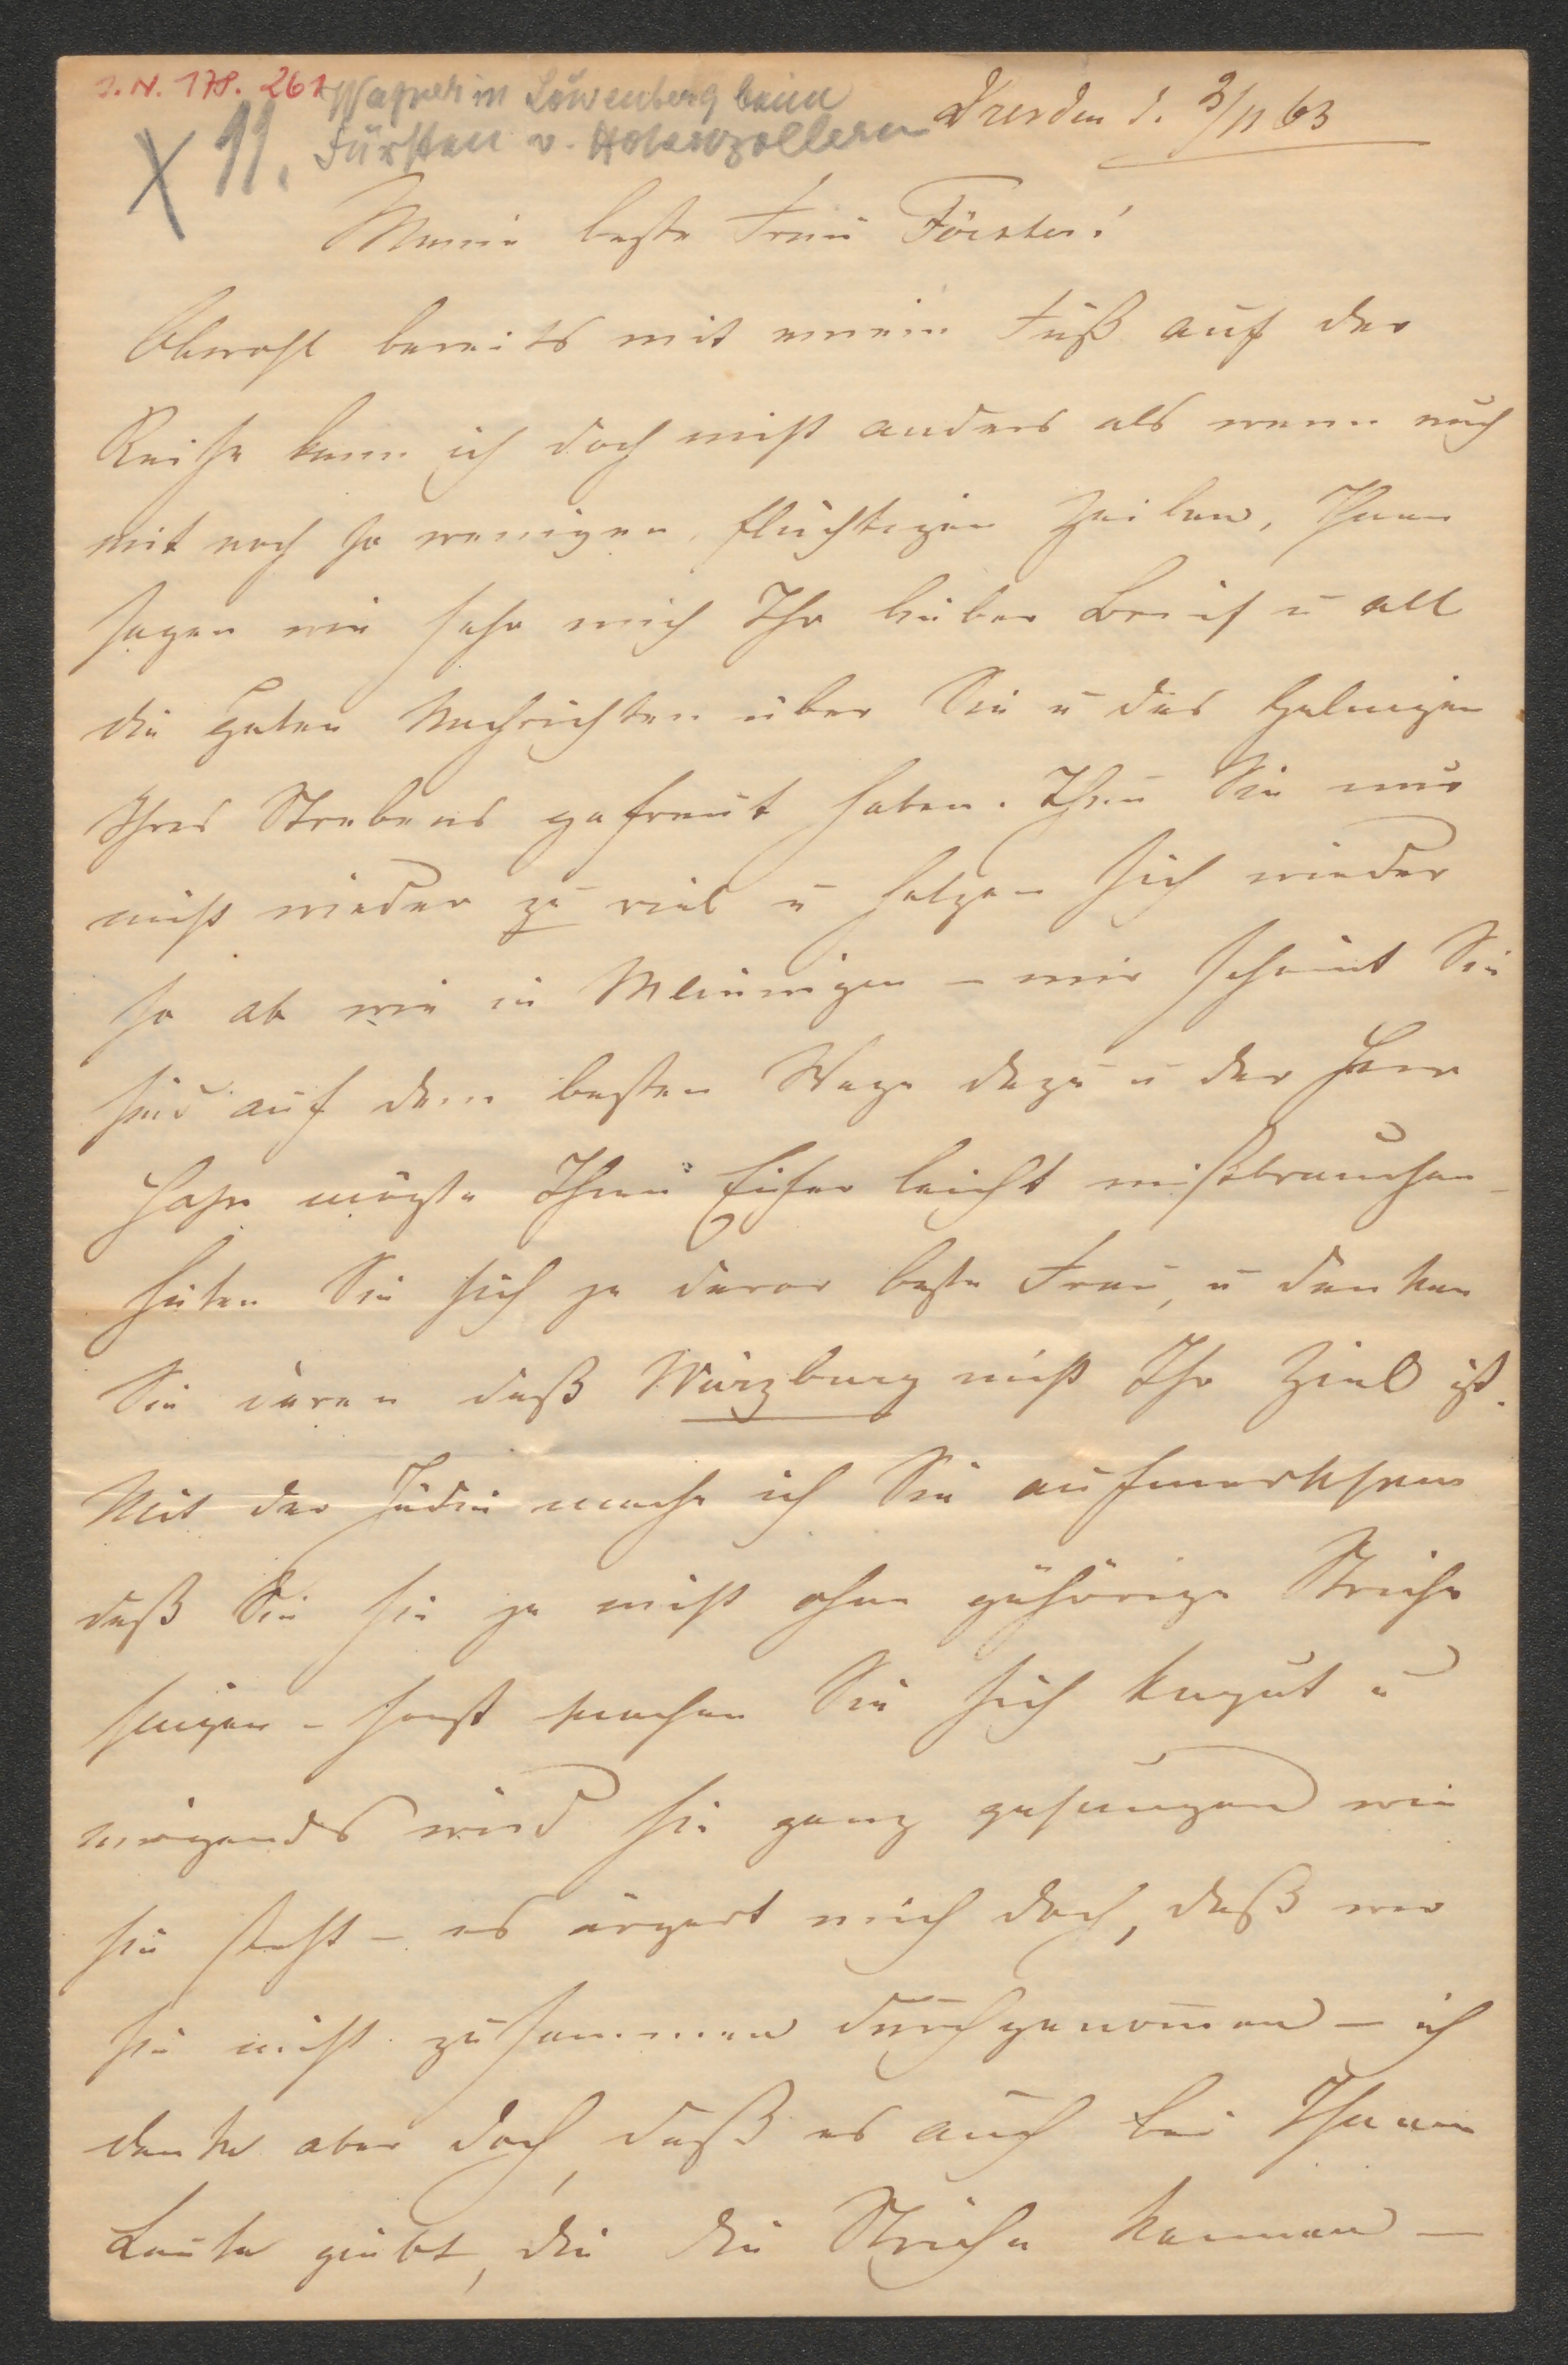 I.N. 178.261 Wagner in Löwenberg beim
X 11. Fürsten v. Hohenzollern
Dresden d. 3/11 63
Meine beste Frau Förster!
Obwohl bereits mit einem Fuß auf der
Reise kann ich doch nicht anders als wenn auch
mit noch so wenigen, flüchtigen Zeilen, Ihnen
sagen wie sehr mich Ihr lieber Brief u all
die guten Nachrichten über Sie u das Gelingen
Ihres Strebens gefreut haben. Thun Sie nur
nicht wieder zu viel u hetzen sich wieder
so ab wie in Meiningen – mir scheint Sie
sind auf dem besten Wege dazu u der Herr
Hahn möchte Ihren Eifer leicht mißbrauchen –
hüten Sie sich ja davor beste Frau, u denken
Sie daran daß Würzburg nicht Ihr Ziel ist.
Mit der Jüdin mache ich Sie aufmerksam
daß Sie sie ja nicht ohne gehörige Striche
singen – sonst machen Sie sich kaput u
nirgends wird sie ganz gesungen wie
sie steht – es ärgert mich doch, daß wir
sie nicht zusammen durchgenomen – ich
denke aber doch, daß es auch bei Ihnen
Leute giebt, die die Striche kennen –